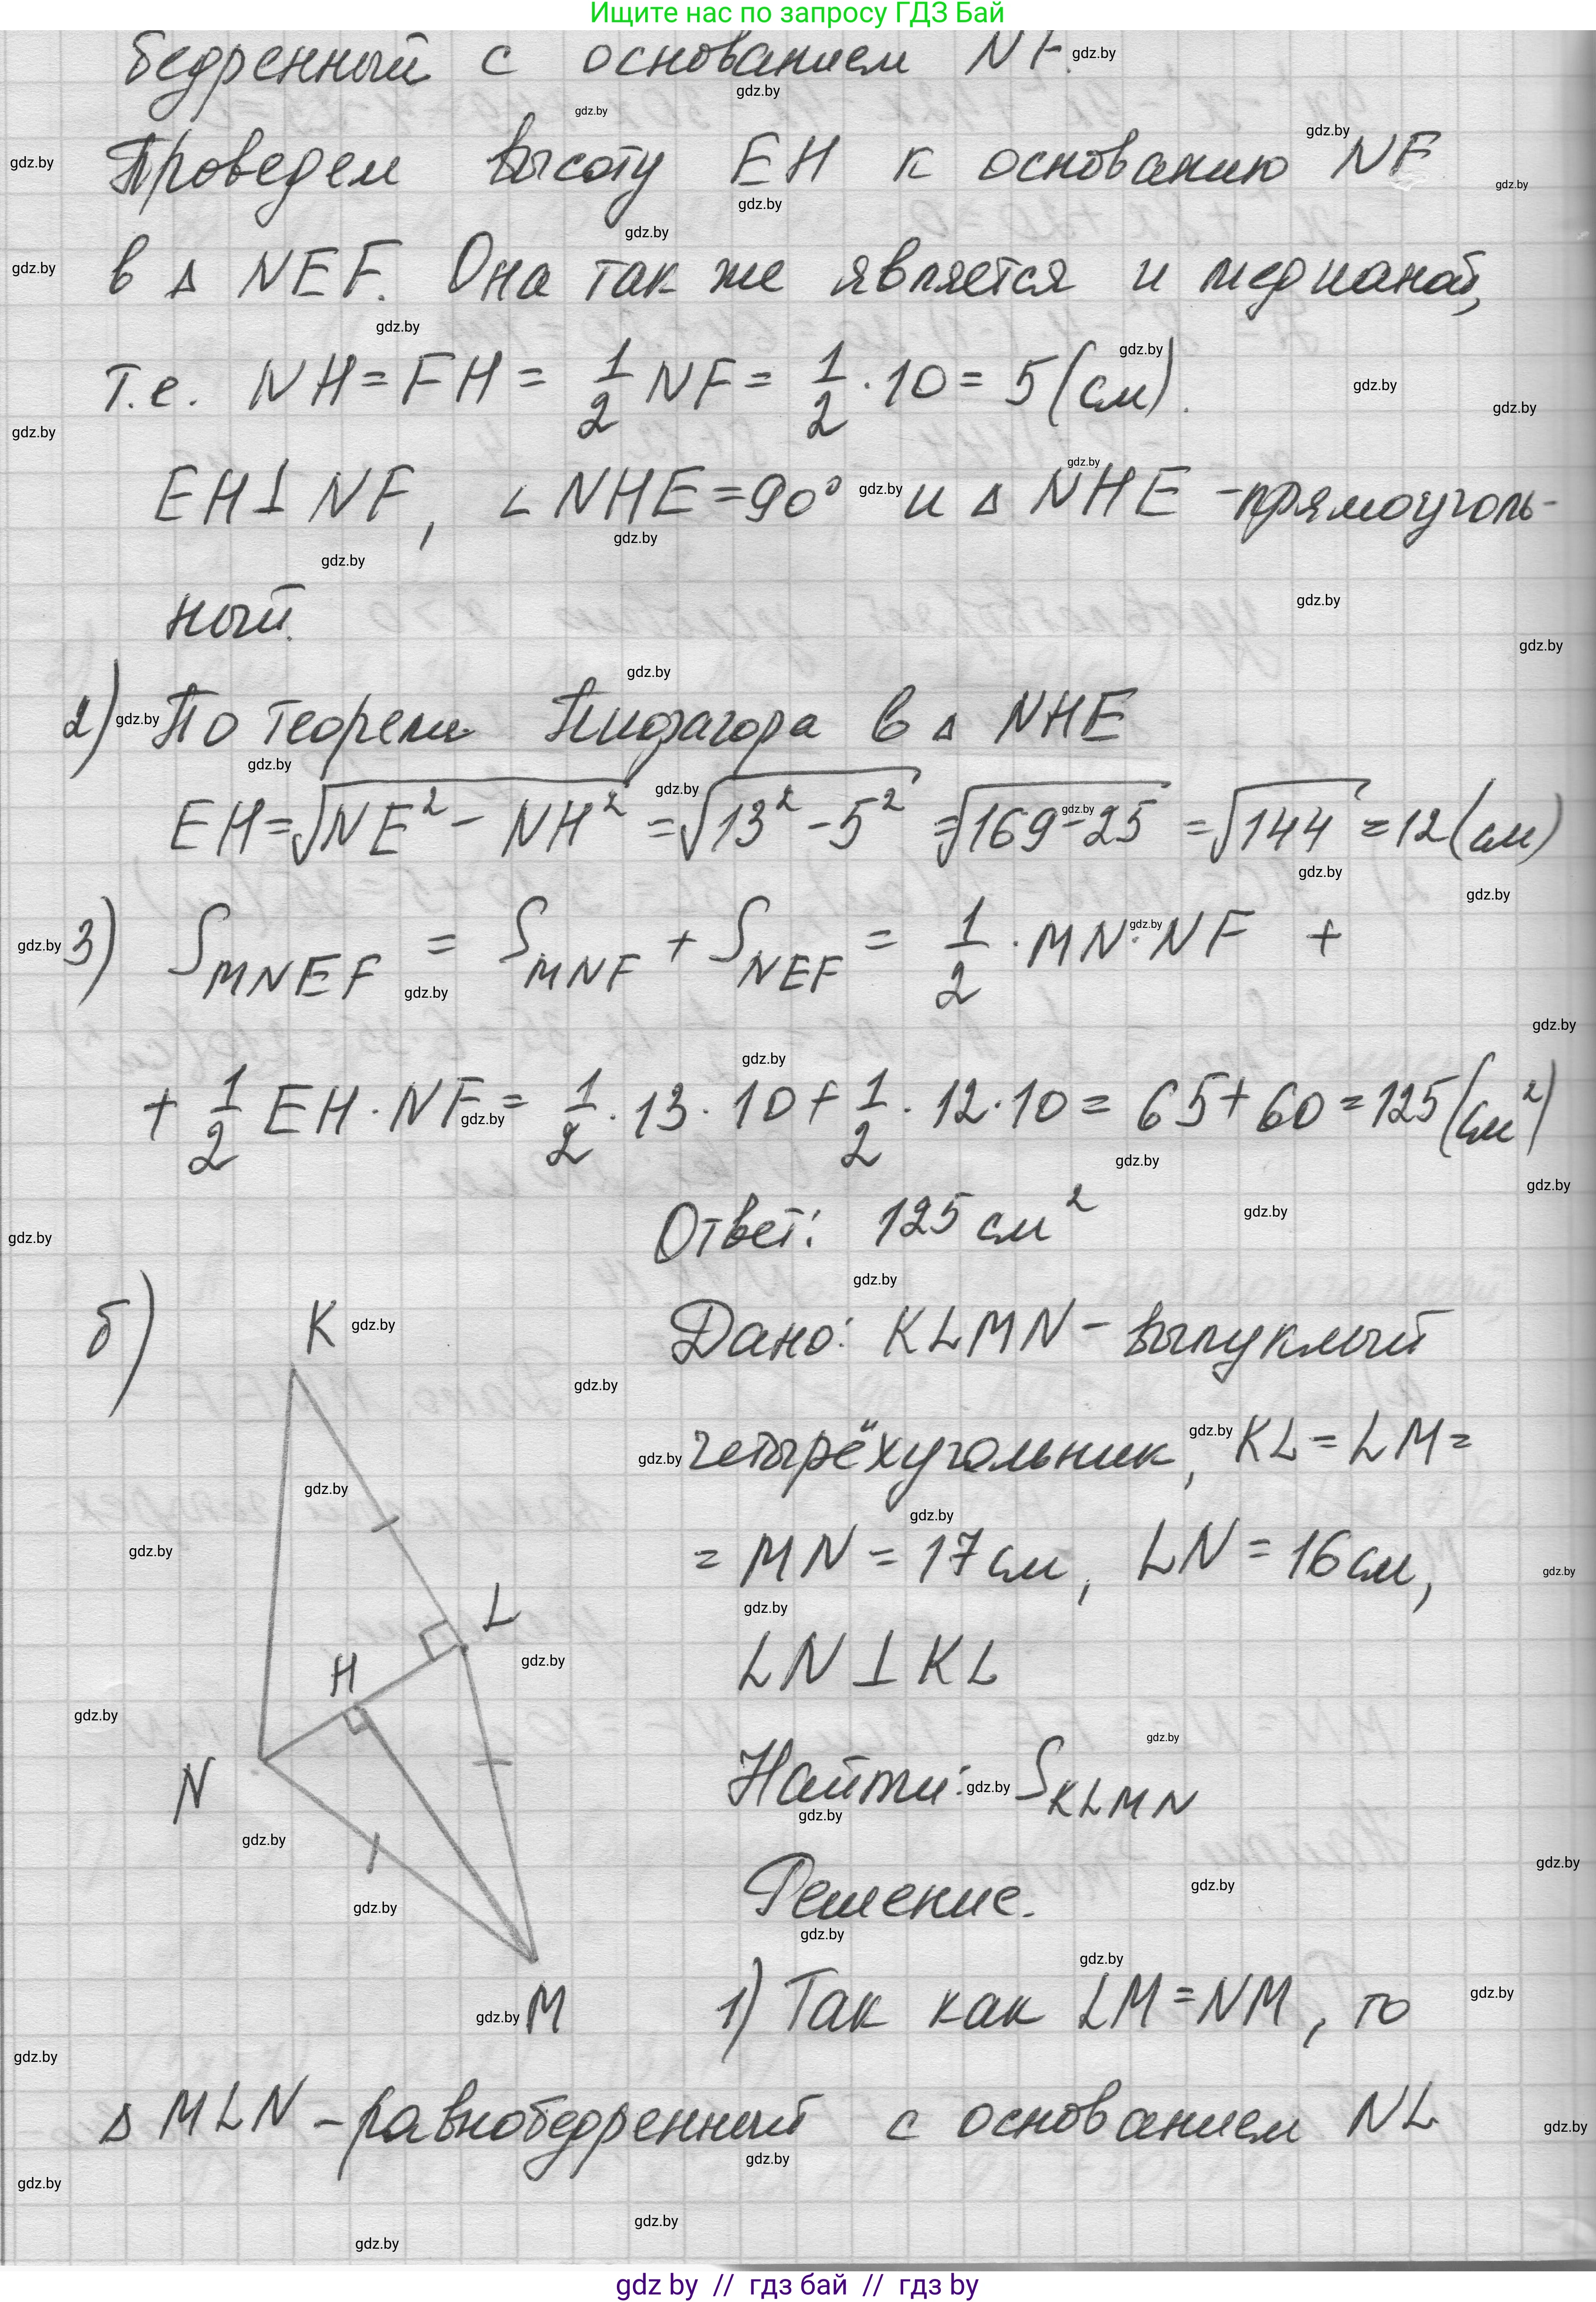 Ищите нас по запросу ГДЗ Бай
бедренный с основанием NF.
Проведем высоту EH к основанию NF
в △ NEF. Она так же является и медианой,
т.е. NH = FH = 1/2 NF = 1/2 · 10 = 5 (см).
EH ⊥ NF, ∠NHE = 90° и △ NHE - прямоуголь-
ный.
2) По теореме Пифагора в △ NHE
EH = √(NE² - NH²) = √(13² - 5²) = √(169 - 25) = √144 = 12 (см)
3) S_MNEF = S_MNF + S_NEF = 1/2 · MN · NF +
+ 1/2 EH · NF = 1/2 · 13 · 10 + 1/2 · 12 · 10 = 65 + 60 = 125 (см²)
Ответ: 125 см²
б)
K
L
H
N
M
Дано: KLMN - выпуклый
четырёхугольник, KL = LM =
= MN = 17 см, LN = 16 см,
LN ⊥ KL
Найти: S_KLMN
Решение.
1) Так как LM = NM, то
△ MLN - равнобедренный с основанием NL
gdz.by
gdz by // гдз бай // гдз by